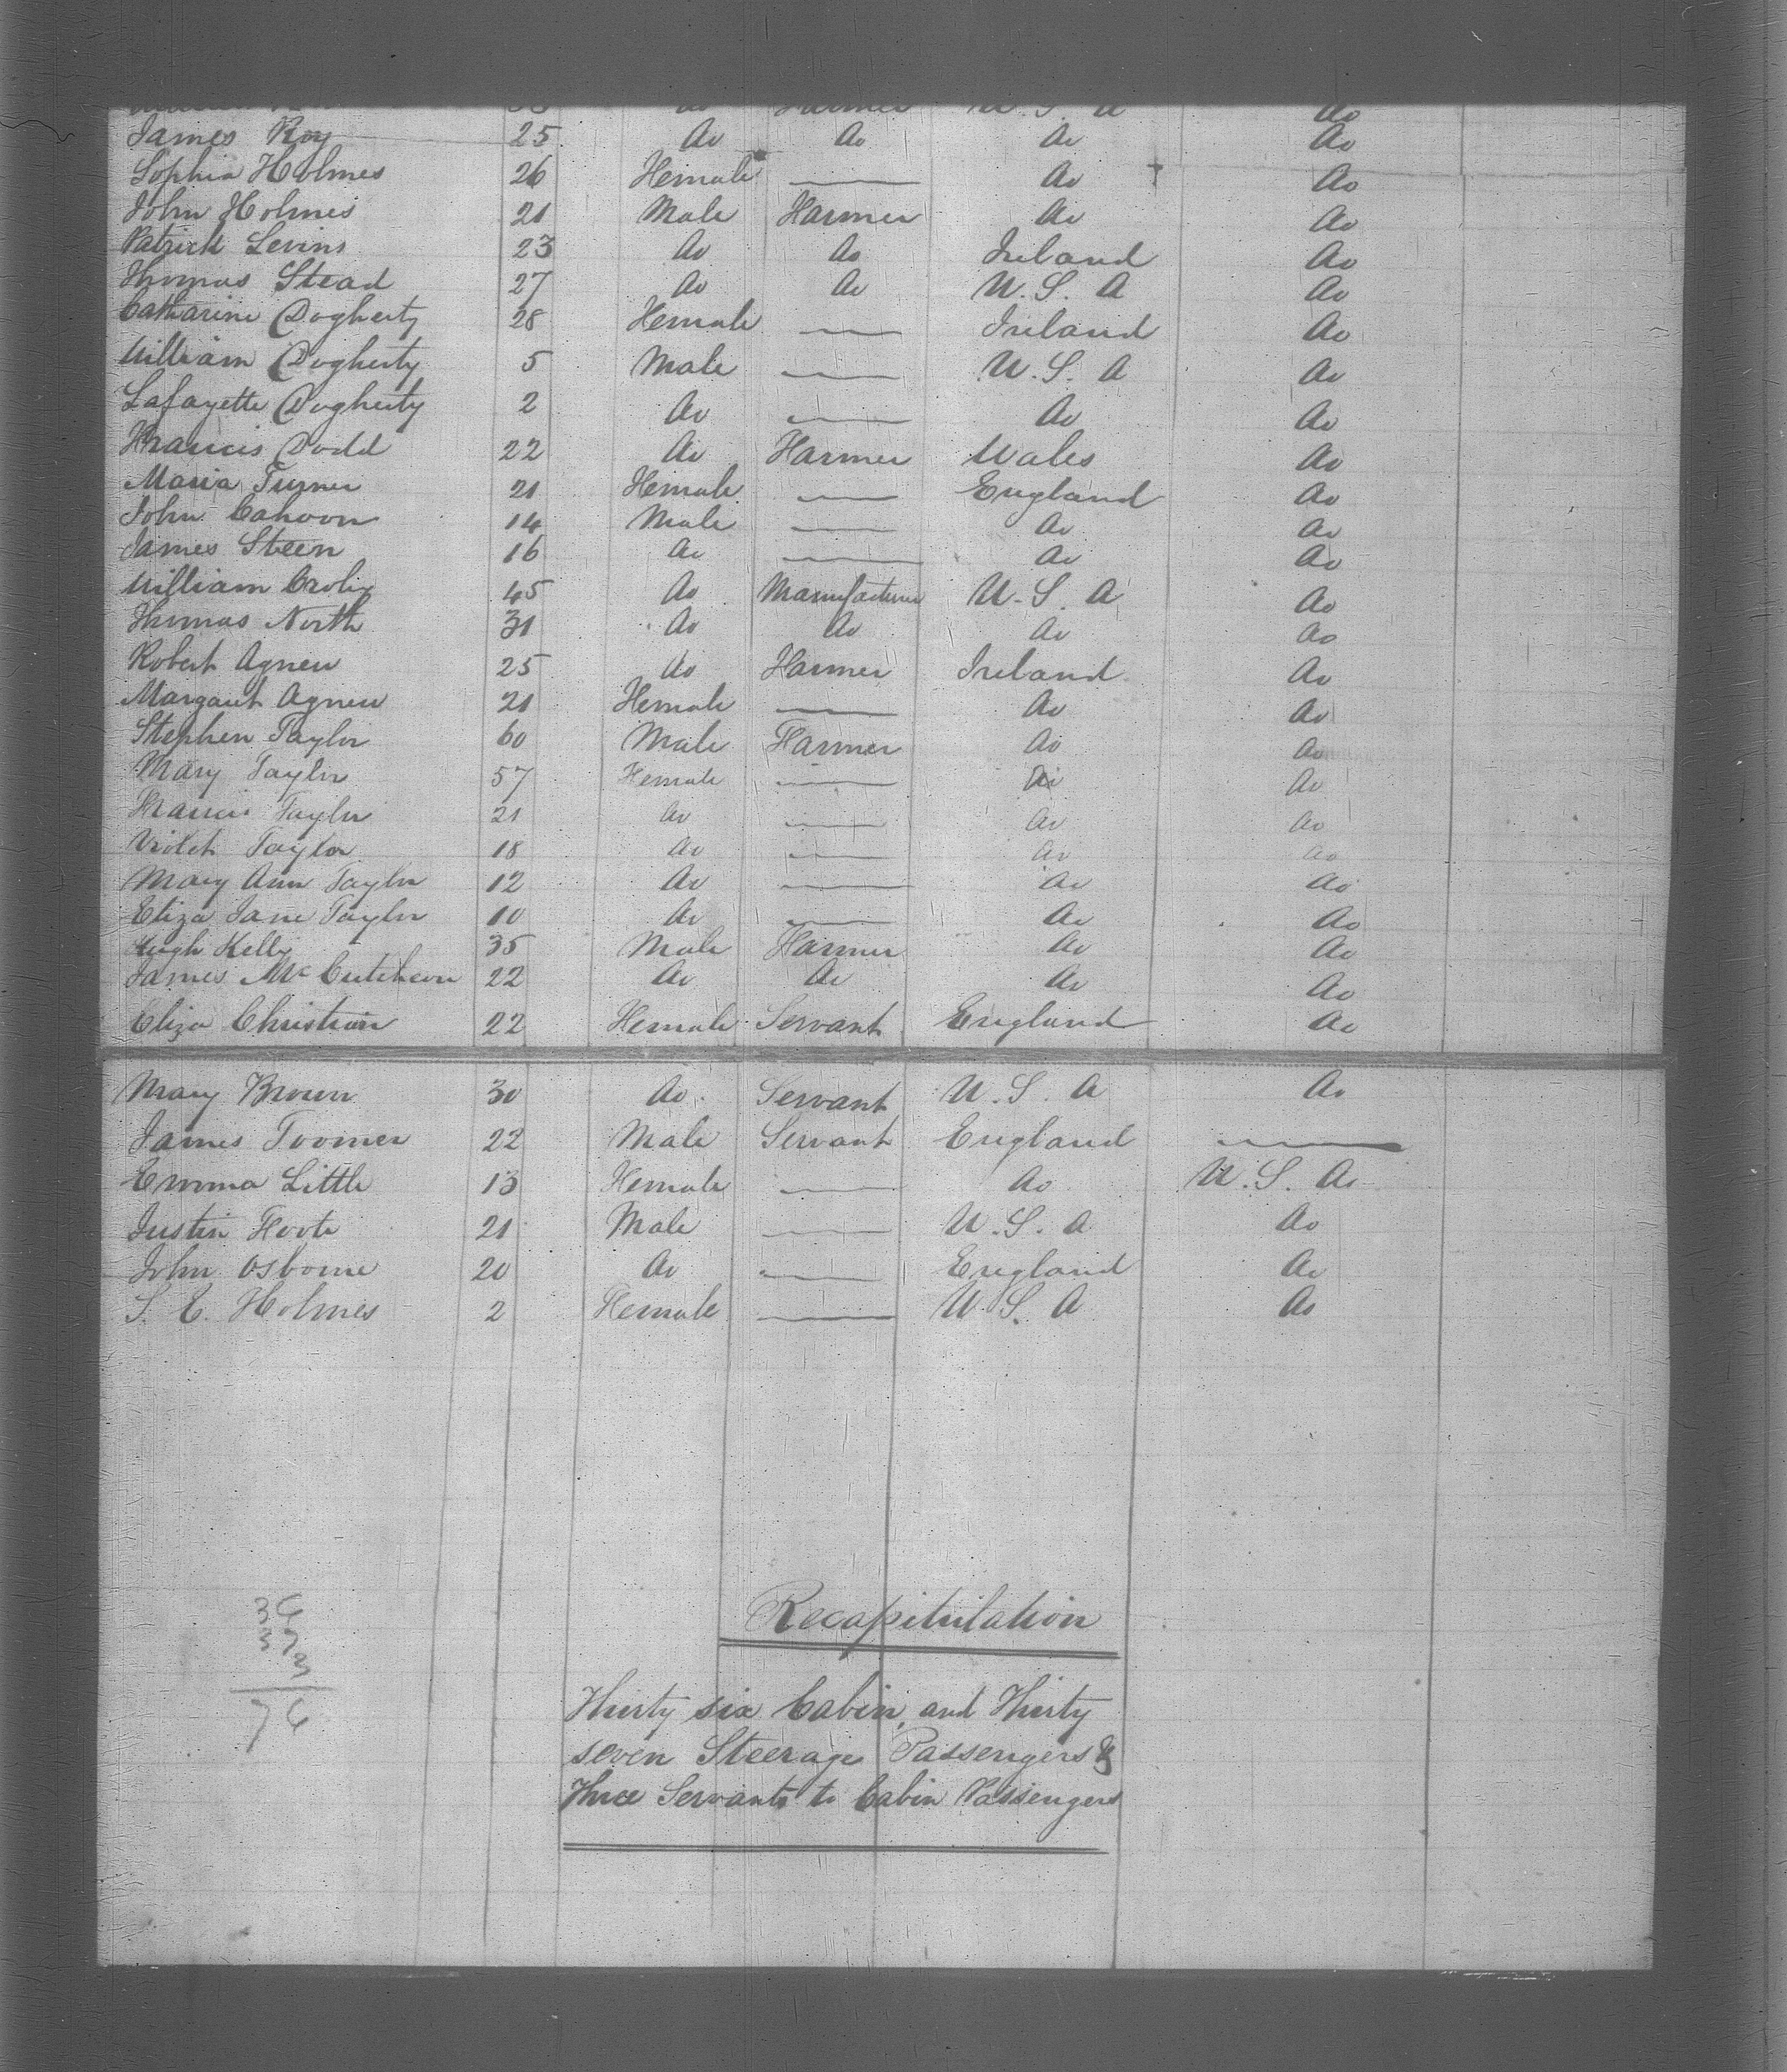 Farmer U. S. A do
James Roy 25 do do do do
Sophia Holmes 26 Female — do do
John Holmes 21 Male Farmer do do
Patrick Levins 23 do do Ireland do
Thomas Stead 27 do do U. S. A do
Catharine Dogherty 28 Female — Ireland do
William Dogherty 5 Male — U. S. A do
Lafayette Dogherty 2 do — do do
Francis Dodd 22 do Farmer Wales do
Maria Turner 21 Female — England do
John Cahoon 14 Male — do do
James Steen 16 do — do do
William 45 do Manufacturer U. S. A do
Thomas North 31 do do do do
Robert Agnew 25 do Farmer Ireland do
Margaret Agnew 21 Female — do do
Stephen Taylor 60 Male Farmer do do
Mary Taylor 57 Female — do do
Francis Taylor 21 do — do do
Violet Taylor 18 do — do do
Mary Ann Taylor 12 do — do do
Eliza Jane Taylor 10 do — do do
Hugh Kelly 35 Male Farmer do do
James McCutcheon 22 do do do do
Eliza Christian 22 Female Servant England do
Mary Brown 30 do Servant U. S. A do
James Toomer 22 Male Servant England —
Emma Little 13 Female — do U. S. A
Justin Foote 21 Male — U. S. A do
John Osborne 20 do — England do
S. E. Holmes 2 Female — U. S. A do
Recapitulation
36
37
3
76
Thirty six Cabin and Thirty
seven Steerage Passengers &
Three Servants to Cabin Passengers